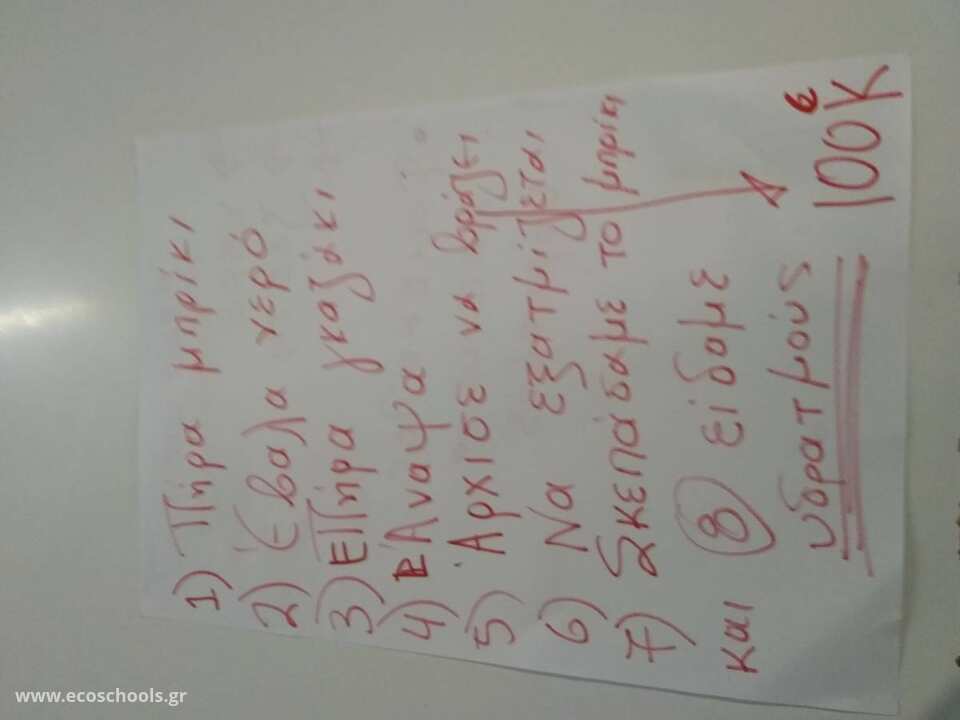 1) Πήρα μπρίκι
2) Έβαλα νερό
3) ΕΠήρα γκαζάκι
4) Άναψα
5) Άρχισε να βράζει
6) Να εξατμίζεται
7) Σκεπάσαμε το μπρίκι
και 8) είδαμε
υδρατμούς
100
www.ecoschools.gr